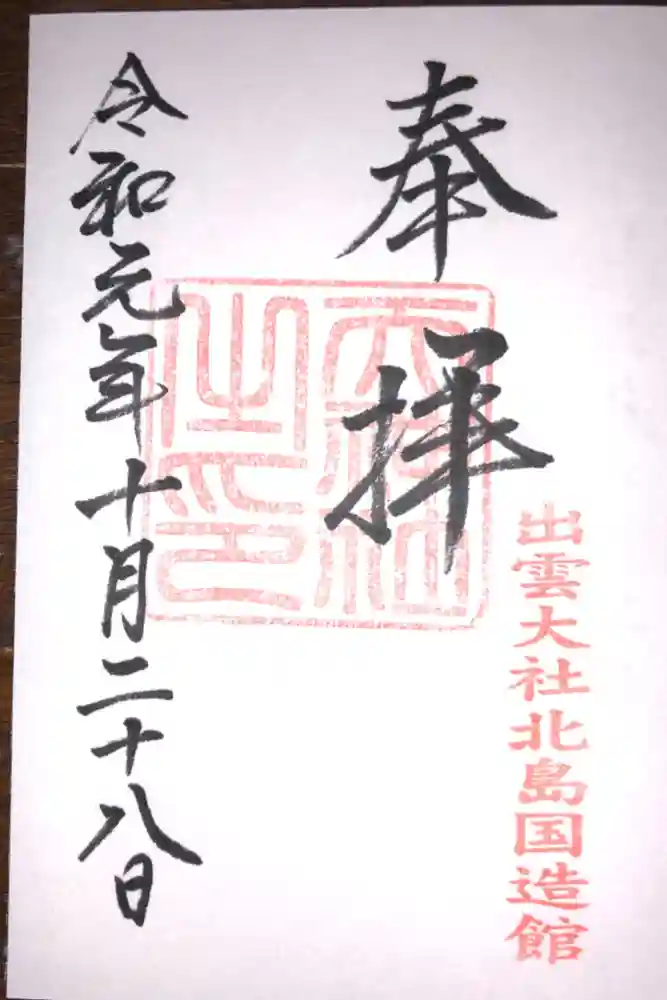 奉拝
出雲大社北島国造館
大社之印
令和元年十月二十八日